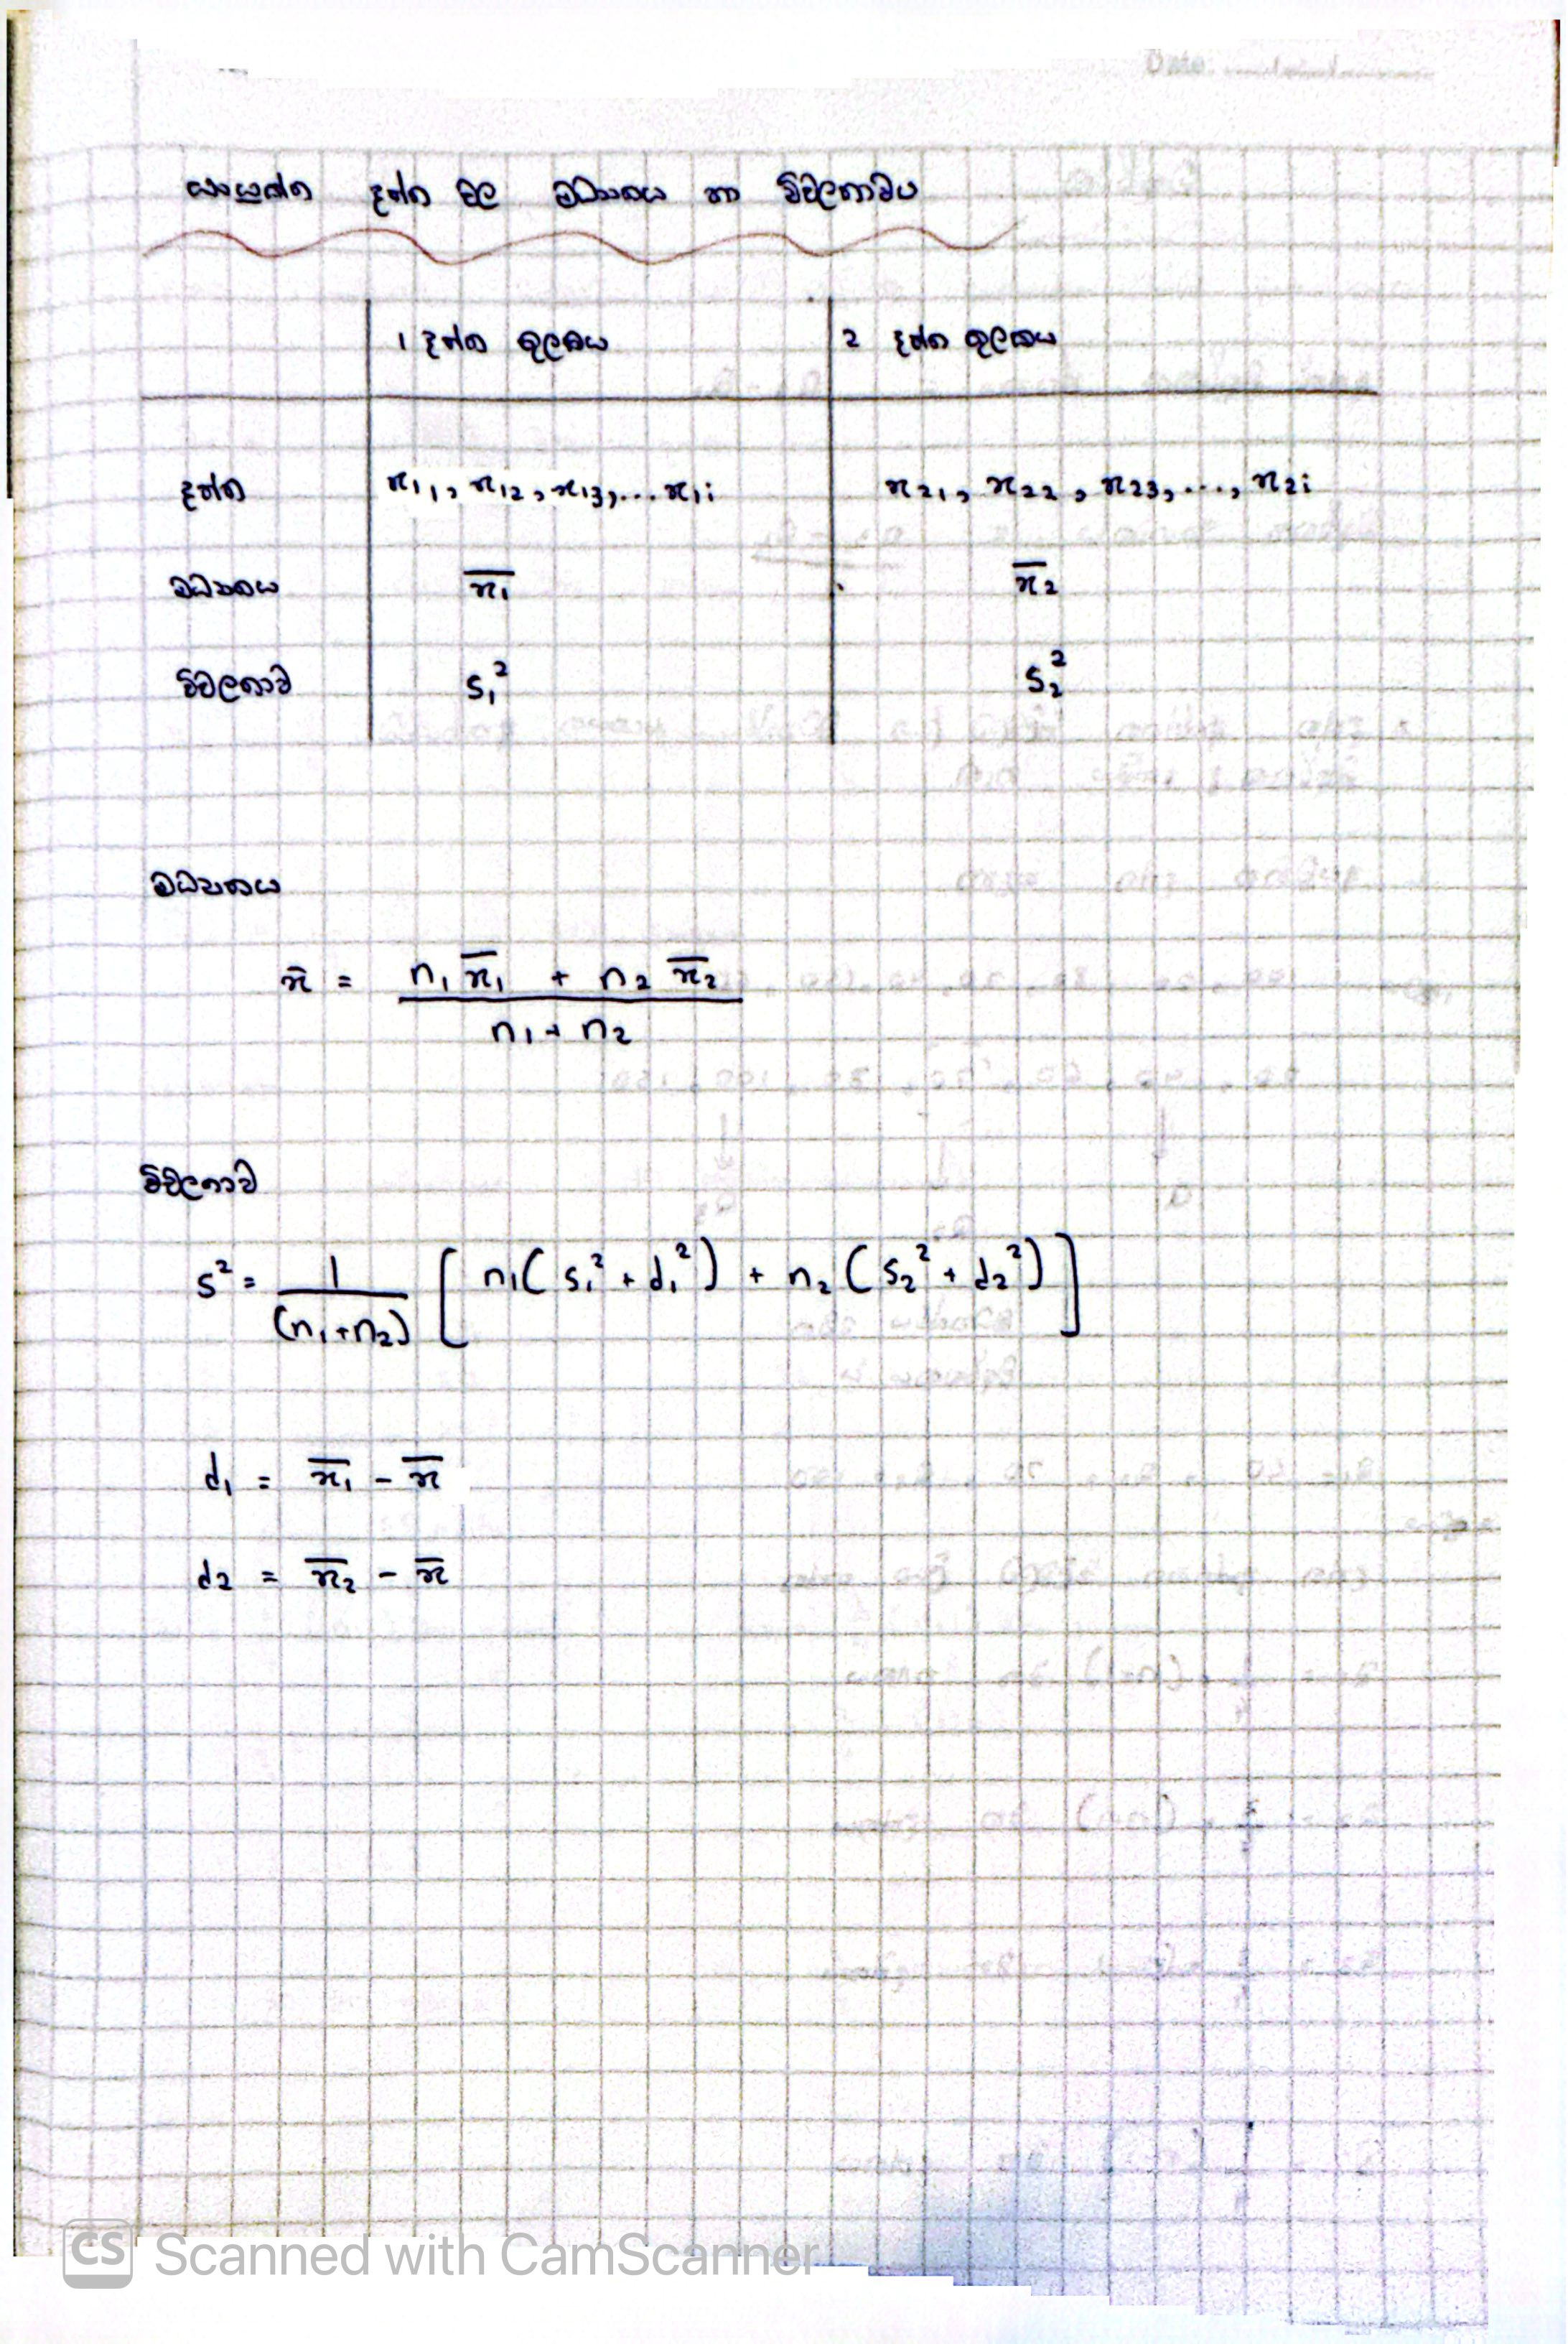 Date
සංයුක්ත දත්ත වල මධ්‍යන්‍යය හා විචලතාවය
1 දත්ත කුලකය 2 දත්ත කුලකය
දත්ත x₁₁, x₁₂, x₁₃, ... x₁ᵢ x₂₁, x₂₂, x₂₃, ..., x₂ᵢ
මධ්‍යන්‍යය x̄₁ x̄₂
විචලතාව s₁² s₂²
මධ්‍යන්‍යය
x̄ = (n₁x̄₁ + n₂x̄₂) / (n₁ + n₂)
විචලතාව
s² = 1/(n₁+n₂) [n₁(s₁² + d₁²) + n₂(s₂² + d₂²)]
d₁ = x̄₁ - x̄
d₂ = x̄₂ - x̄
CS Scanned with CamScanner